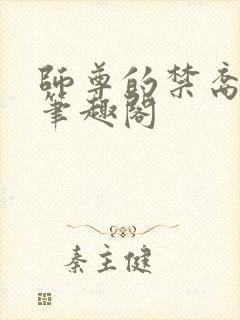 師尊的禁脔
筆趣閣
秦主健